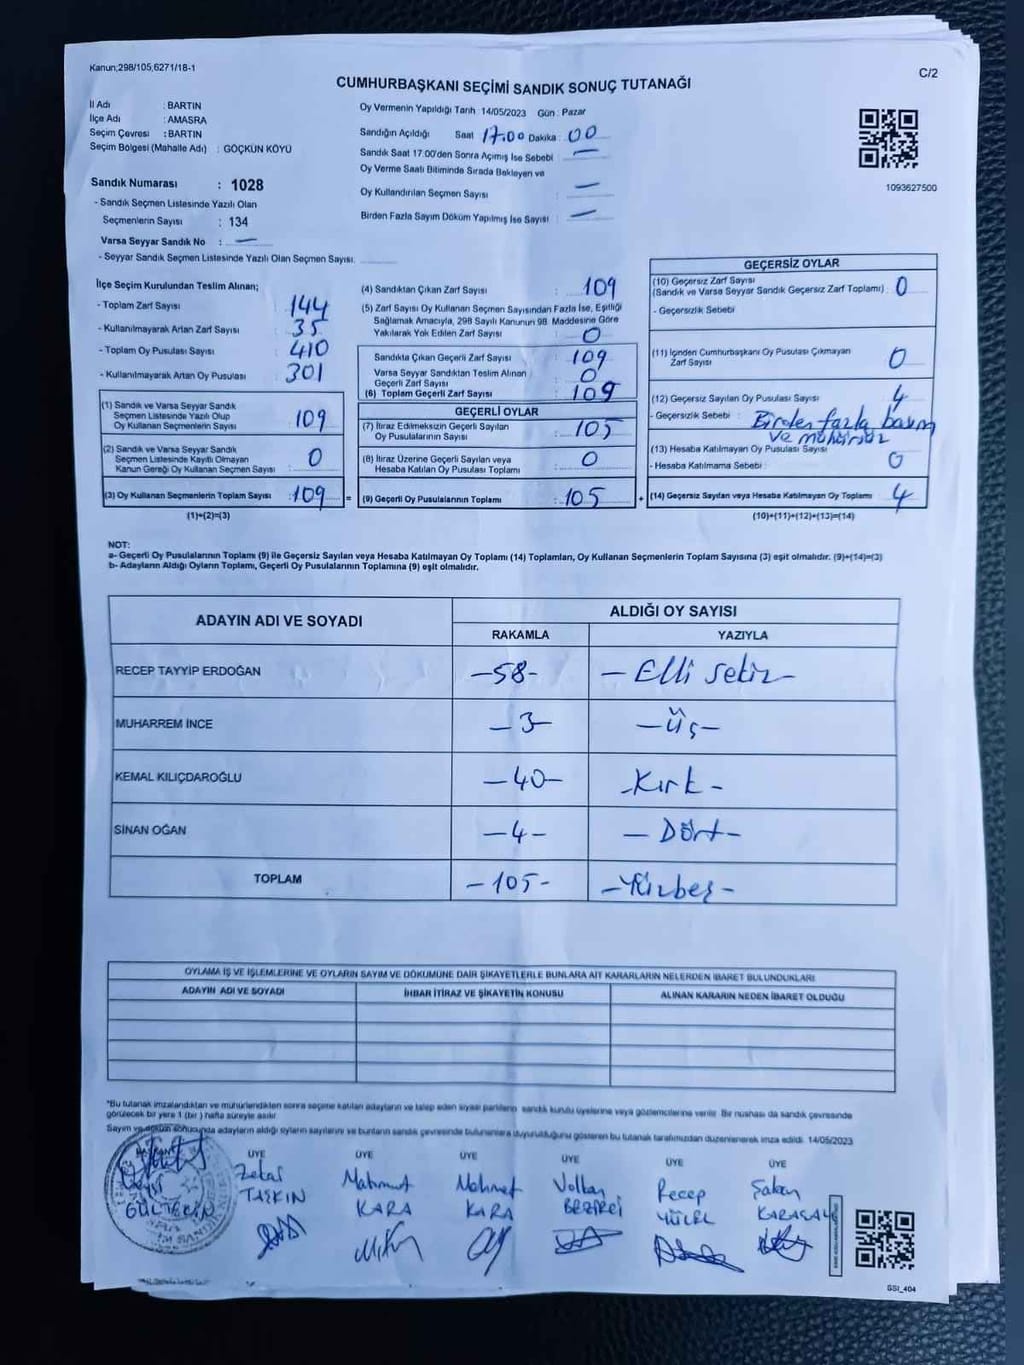 Kanun;298/105,6271/18-1
C/2
CUMHURBAŞKANI SEÇİMİ SANDIK SONUÇ TUTANAĞI
İl Adı : BARTIN
İlçe Adı : AMASRA
Seçim Çevresi : BARTIN
Seçim Bölgesi (Mahalle Adı) : GÖÇKÜN KÖYÜ
Oy Vermenin Yapıldığı Tarih 14/05/2023 Gün : Pazar
Sandığın Açıldığı Saat 17.00 Dakika : 00
Sandık Saat 17.00'den Sonra Açımış İse Sebebi —
Oy Verme Saati Bitiminde Sırada Bekleyen ve
Oy Kullandırılan Seçmen Sayısı : —
Birden Fazla Sayım Döküm Yapılmış İse Sayısı : —
1093627500
Sandık Numarası : 1028
- Sandık Seçmen Listesinde Yazılı Olan
Seçmenlerin Sayısı : 134
Varsa Seyyar Sandık No : —
- Seyyar Sandık Seçmen Listesinde Yazılı Olan Seçmen Sayısı:
İlçe Seçim Kurulundan Teslim Alınan;
- Toplam Zarf Sayısı 144
- Kullanılmayarak Artan Zarf Sayısı 35
- Toplam Oy Pusulası Sayısı 410
- Kullanılmayarak Artan Oy Pusulası 301
(1) Sandık ve Varsa Seyyar Sandık
Seçmen Listesinde Yazılı Olup
Oy Kullanan Seçmenlerin Sayısı 109
(2) Sandık ve Varsa Seyyar Sandık
Seçmen Listesinde Kayıtlı Olmayan
Kanun Gereği Oy Kullanan Seçmen Sayısı 0
(3) Oy Kullanan Seçmenlerin Toplam Sayısı : 109 =
(1)+(2)=(3)
(4) Sandıktan Çıkan Zarf Sayısı : 109
(5) Zarf Sayısı Oy Kullanan Seçmen Sayısından Fazla İse, Eşitliği
Sağlamak Amacıyla, 298 Sayılı Kanunun 98. Maddesine Göre
Yakılarak Yok Edilen Zarf Sayısı : 0
Sandıkta Çıkan Geçerli Zarf Sayısı : 109
Varsa Seyyar Sandıktan Teslim Alınan
Geçerli Zarf Sayısı : 0
(6) Toplam Geçerli Zarf Sayısı : 109
GEÇERLİ OYLAR
(7) İtiraz Edilmeksizin Geçerli Sayılan
Oy Pusulalarının Sayısı : 105
(8) İtiraz Üzerine Geçerli Sayılan veya
Hesaba Katılan Oy Pusulası Toplamı : 0
(9) Geçerli Oy Pusulalarının Toplamı : 105 +
GEÇERSİZ OYLAR
(10) Geçersiz Zarf Sayısı
(Sandık ve Varsa Seyyar Sandık Geçersiz Zarf Toplamı) : 0
- Geçersizlik Sebebi
(11) İçinden Cumhurbaşkanı Oy Pusulası Çıkmayan
Zarf Sayısı 0
(12) Geçersiz Sayılan Oy Pusulası Sayısı 4
- Geçersizlik Sebebi : Birden fazla basım
ve mühürsüz
(13) Hesaba Katılmayan Oy Pusulası Sayısı 0
- Hesaba Katılmama Sebebi :
(14) Geçersiz Sayılan veya Hesaba Katılmayan Oy Toplamı 4
(10)+(11)+(12)+(13)=(14)
NOT:
a- Geçerli Oy Pusulalarının Toplamı (9) ile Geçersiz Sayılan veya Hesaba Katılmayan Oy Toplamı (14) Toplamları, Oy Kullanan Seçmenlerin Toplam Sayısına (3) eşit olmalıdır. (9)+(14)=(3)
b- Adayların Aldığı Oyların Toplamı, Geçerli Oy Pusulalarının Toplamına (9) eşit olmalıdır.
ADAYIN ADI VE SOYADI ALDIĞI OY SAYISI
RAKAMLA YAZIYLA
RECEP TAYYİP ERDOĞAN -58- - Elli sekiz -
MUHARREM İNCE -3- -üç-
KEMAL KILIÇDAROĞLU -40- -Kırk-
SİNAN OĞAN -4- - Dört-
TOPLAM -105- -Yüzbeş-
OYLAMA İŞ VE İŞLEMLERİNE VE OYLARIN SAYIM VE DÖKÜMÜNE DAİR ŞİKAYETLERLE BUNLARA AİT KARARLARIN NELERDEN İBARET BULUNDUKLARI
ADAYIN ADI VE SOYADI İHBAR İTİRAZ VE ŞİKAYETİN KONUSU ALINAN KARARIN NEDEN İBARET OLDUĞU
*Bu tutanak imzalandıktan ve mühürlendikten sonra seçime katılan adayların ve talep eden siyasi partilerin sandık kurulu üyelerine veya gözlemcilerine verilir. Bir nüshası da sandık çevresinde
görülecek bir yere 1 (bir) hafta süreyle asılır.
Sayım ve döküm sonucunda adayların aldığı oyların sayılarını ve bunların sandık çevresinde bulunanlara duyurulduğunu gösteren bu tutanak tarafımızdan düzenlenerek imza edildi. 14/05/2023
ÜYE ÜYE ÜYE ÜYE ÜYE ÜYE
GÜLTEKİN
Zekai TAŞKIN
Mahmut KARA
Mehmet KARA
Volkan
Recep YÜCEL
Şaban
GSI_404